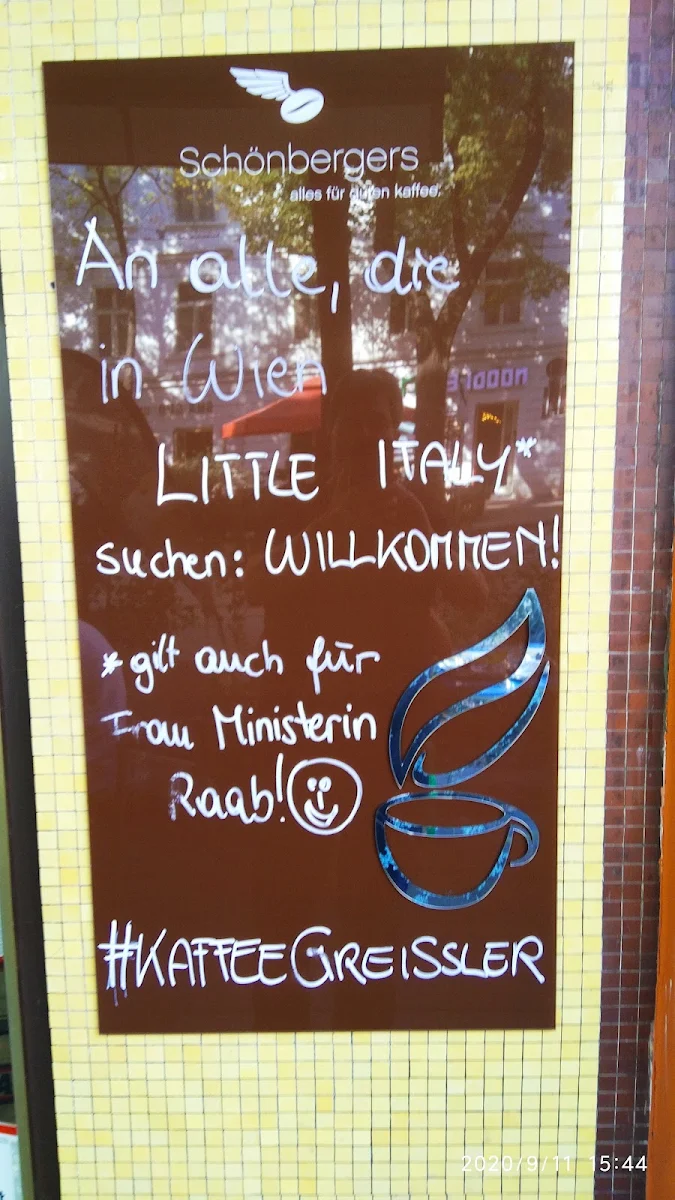 Schönbergers
alles für guten kaffee.
An alle, die
in Wien
LITTLE ITALY*
suchen: WILLKOMMEN!
*gilt auch für
Frau Ministerin
Raab!
#KAFFEEGREISSLER
2020/9/11 15:44